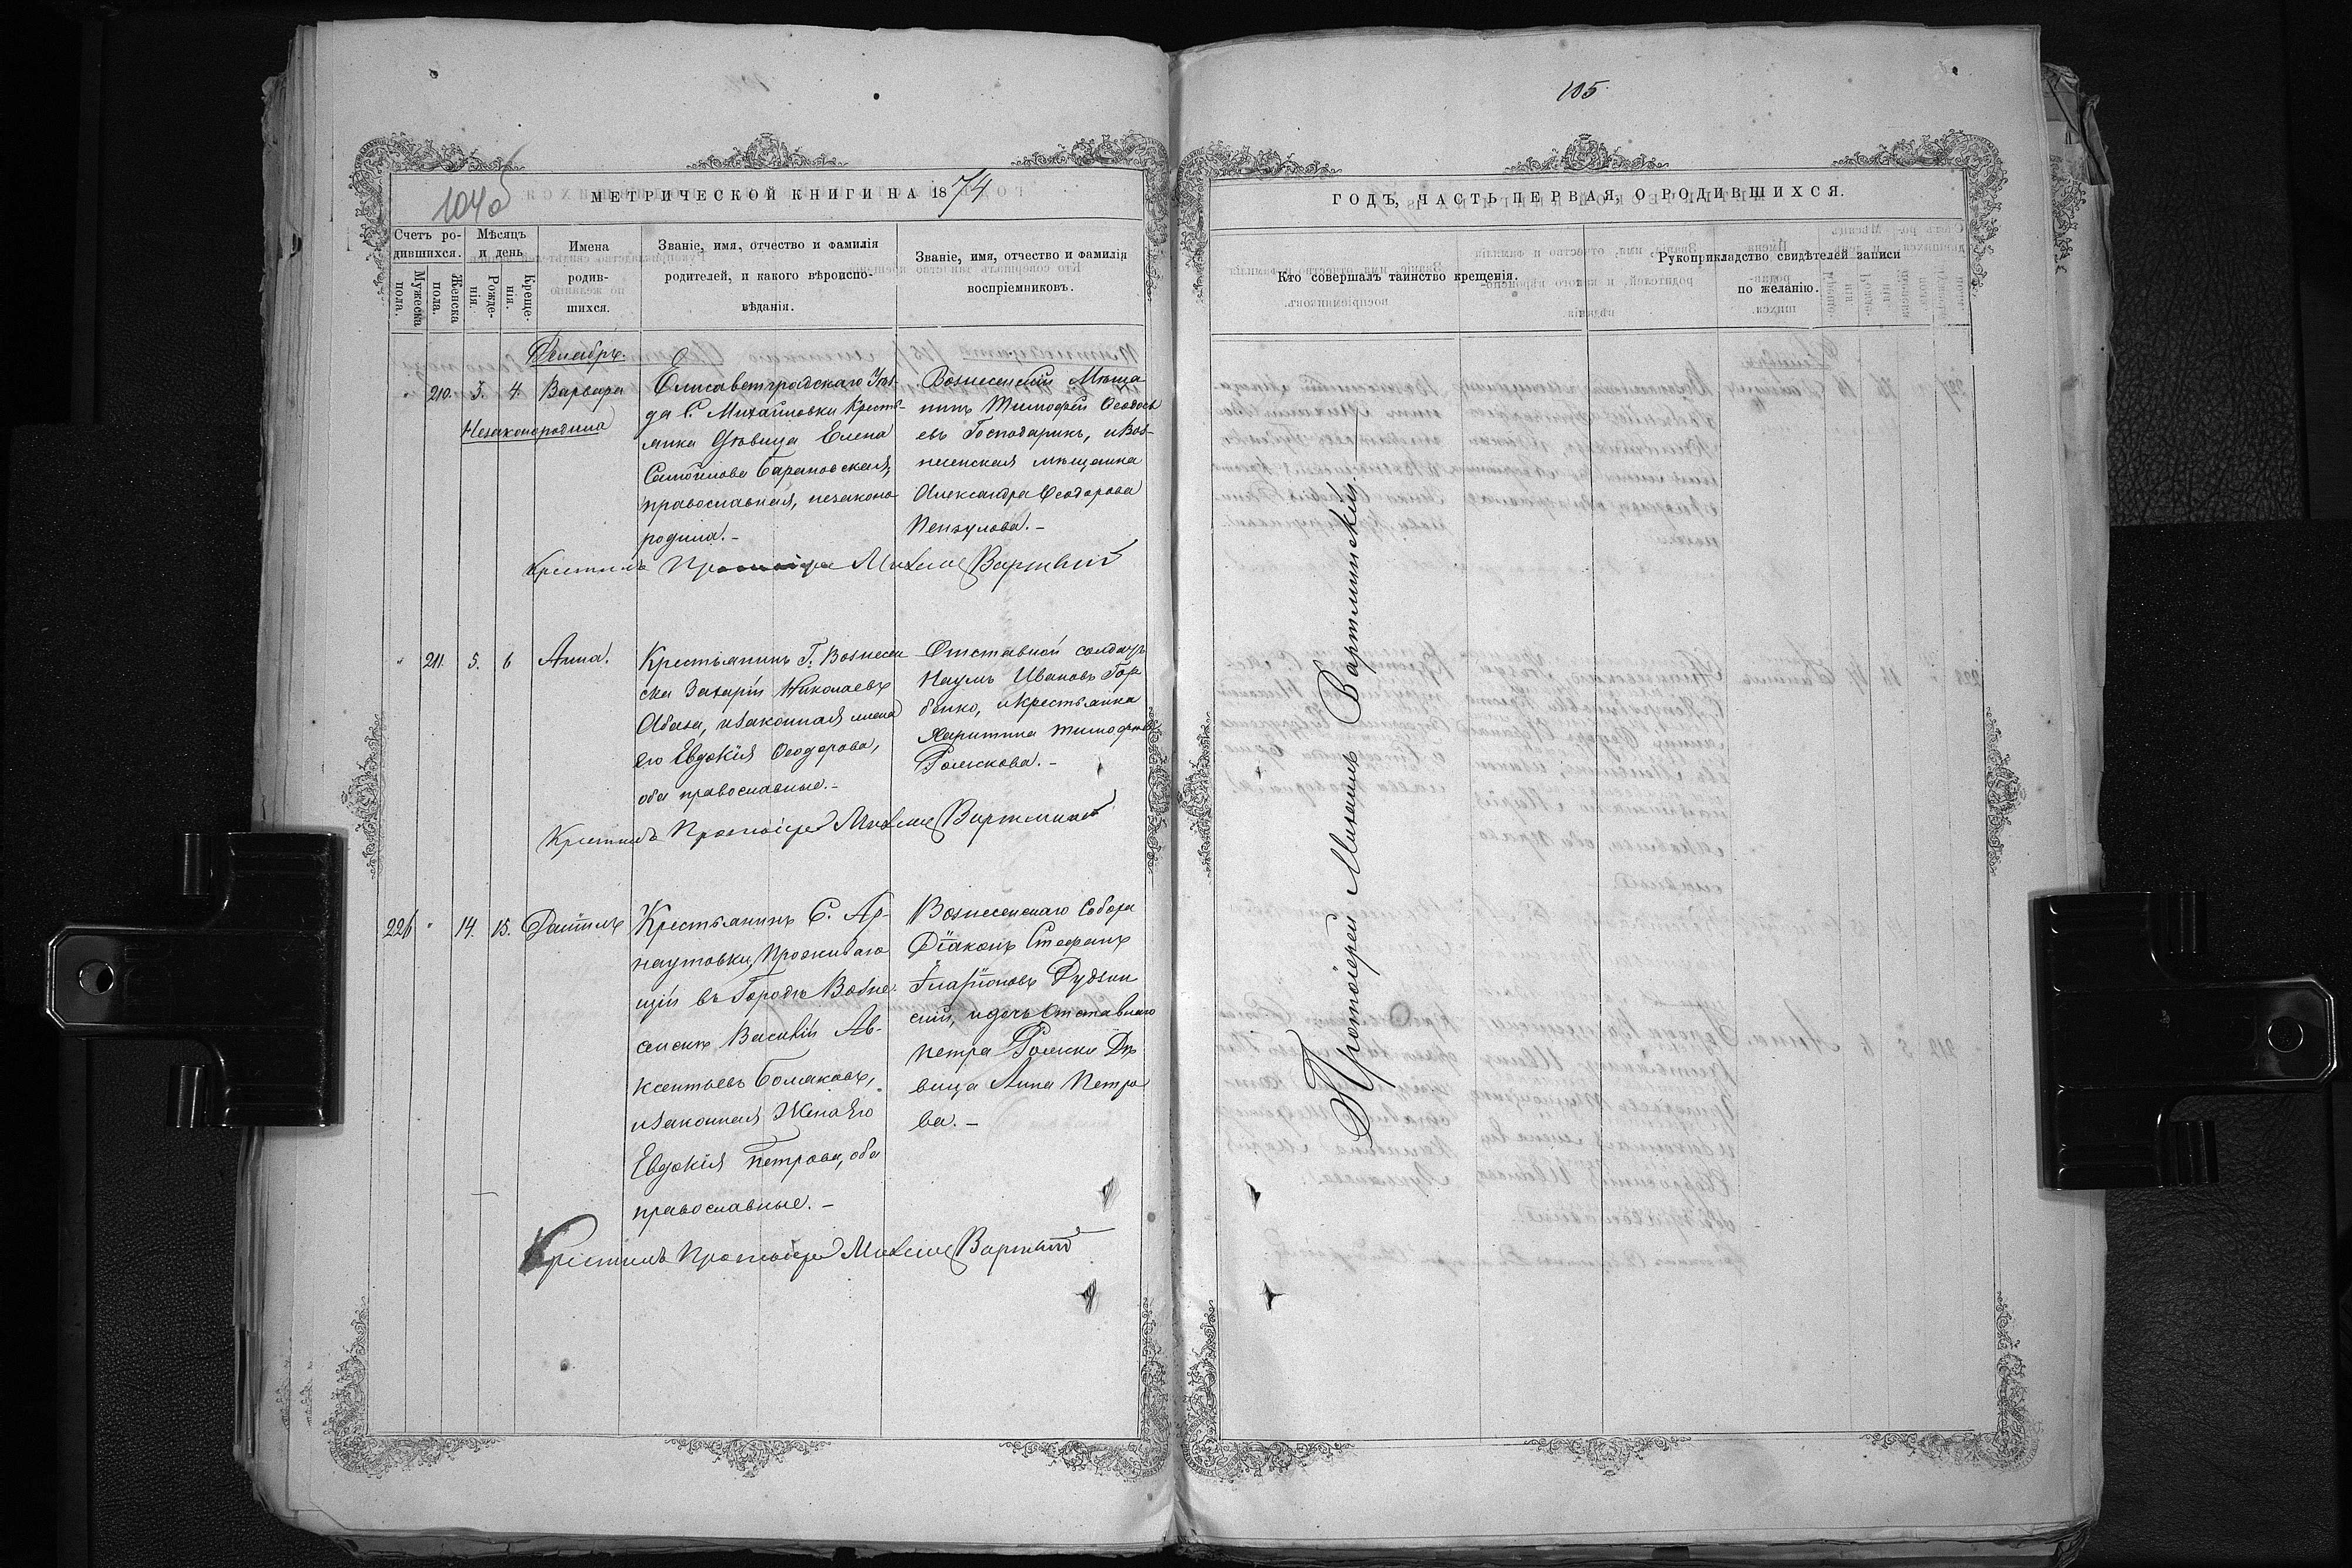 105
104об
МЕТРИЧЕСКОЙ КНИГИ НА 1874
ГОДЪ, ЧАСТЬ ПЕРВАЯ, О РОДИВШИХСЯ.
Счетъ ро-
дившихся.
Мужеска
пола.
Женска
пола.
Мѣсяцъ
и день
Рожде-
нія.
Креще-
нія.
Имена
родив-
шихся.
Званіе, имя, отчество и фамилія
родителей, и какого вѣроиспо-
вѣданія.
Званіе, имя, отчество и фамилія
воспріемниковъ.
Кто совершалъ таинство крещенія.
Рукоприкладство свидѣтелей записи
по желанію.
Декабрь.
" 210. 3. 4. Варвара
Незаконородила
Елисаветградскаго Уѣз-
да С. Михайловки Кресть-
янка Дѣвица Елена
Самойлова Барановская,
православная, незаконо
родила. -
Вознесенскій Мѣща
нинъ Тимофей Ѳеодось
евъ Господарикъ, и Воз-
несенская мѣщанка
Александра Ѳеодорова
Пензулова. -
Крестилъ Протоіерей Михаилъ
" 211. 5. 6 Анна.
Крестьянинъ Г. Вознесен
ска Захарій Николаевъ
Абаза, и законная жена
его Евдокія Ѳеодорова,
оба православные. -
Отставной солдатъ
Наумъ Ивановъ Гор
бенко, и крестьянка
Харитина Тимофѣева
Крестилъ Протоіерей Михаилъ
226 " 14. 15. Даніилъ
Крестьянинъ С. Ар-
наутовки, Проживаю
щій въ Городѣ Возне-
сенскѣ Василій Ав-
ксентьевъ
и законная Жена Его
Евдокія Петрова, оба
православные. -
Вознесенскаго Собора
Діаконъ Стефанъ
Иларіоновъ
скій, и дочь Отставнаго
Петра Дѣ
вица Анна Петро
ва. -
Крестилъ Протоіерей Михаилъ
Протоіерей Михаилъ Вартминскій